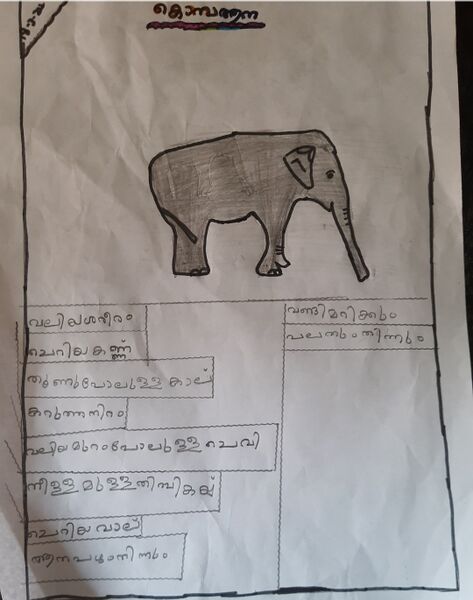 കൊമ്പനാന
വലിയശരീരം
ചെറിയകണ്ണ്
തൂണുപോലുള്ള കാല്
കറുത്തനിറം
വലിയമുറംപോലുള്ള ചെവി
നീളമുള്ളതുമ്പികയ്യ്
ചെറിയ വാല്
ആന
വണ്ടിമറിക്കും
പലതുംതിന്നും